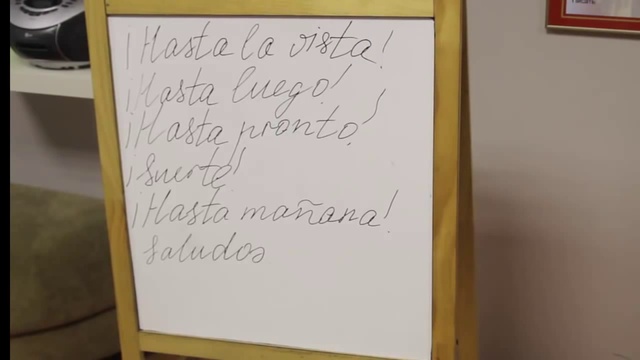 ¡Hasta la vista!
¡Hasta luego!
¡Hasta pronto!
¡Suerte!
¡Hasta mañana!
Saludos